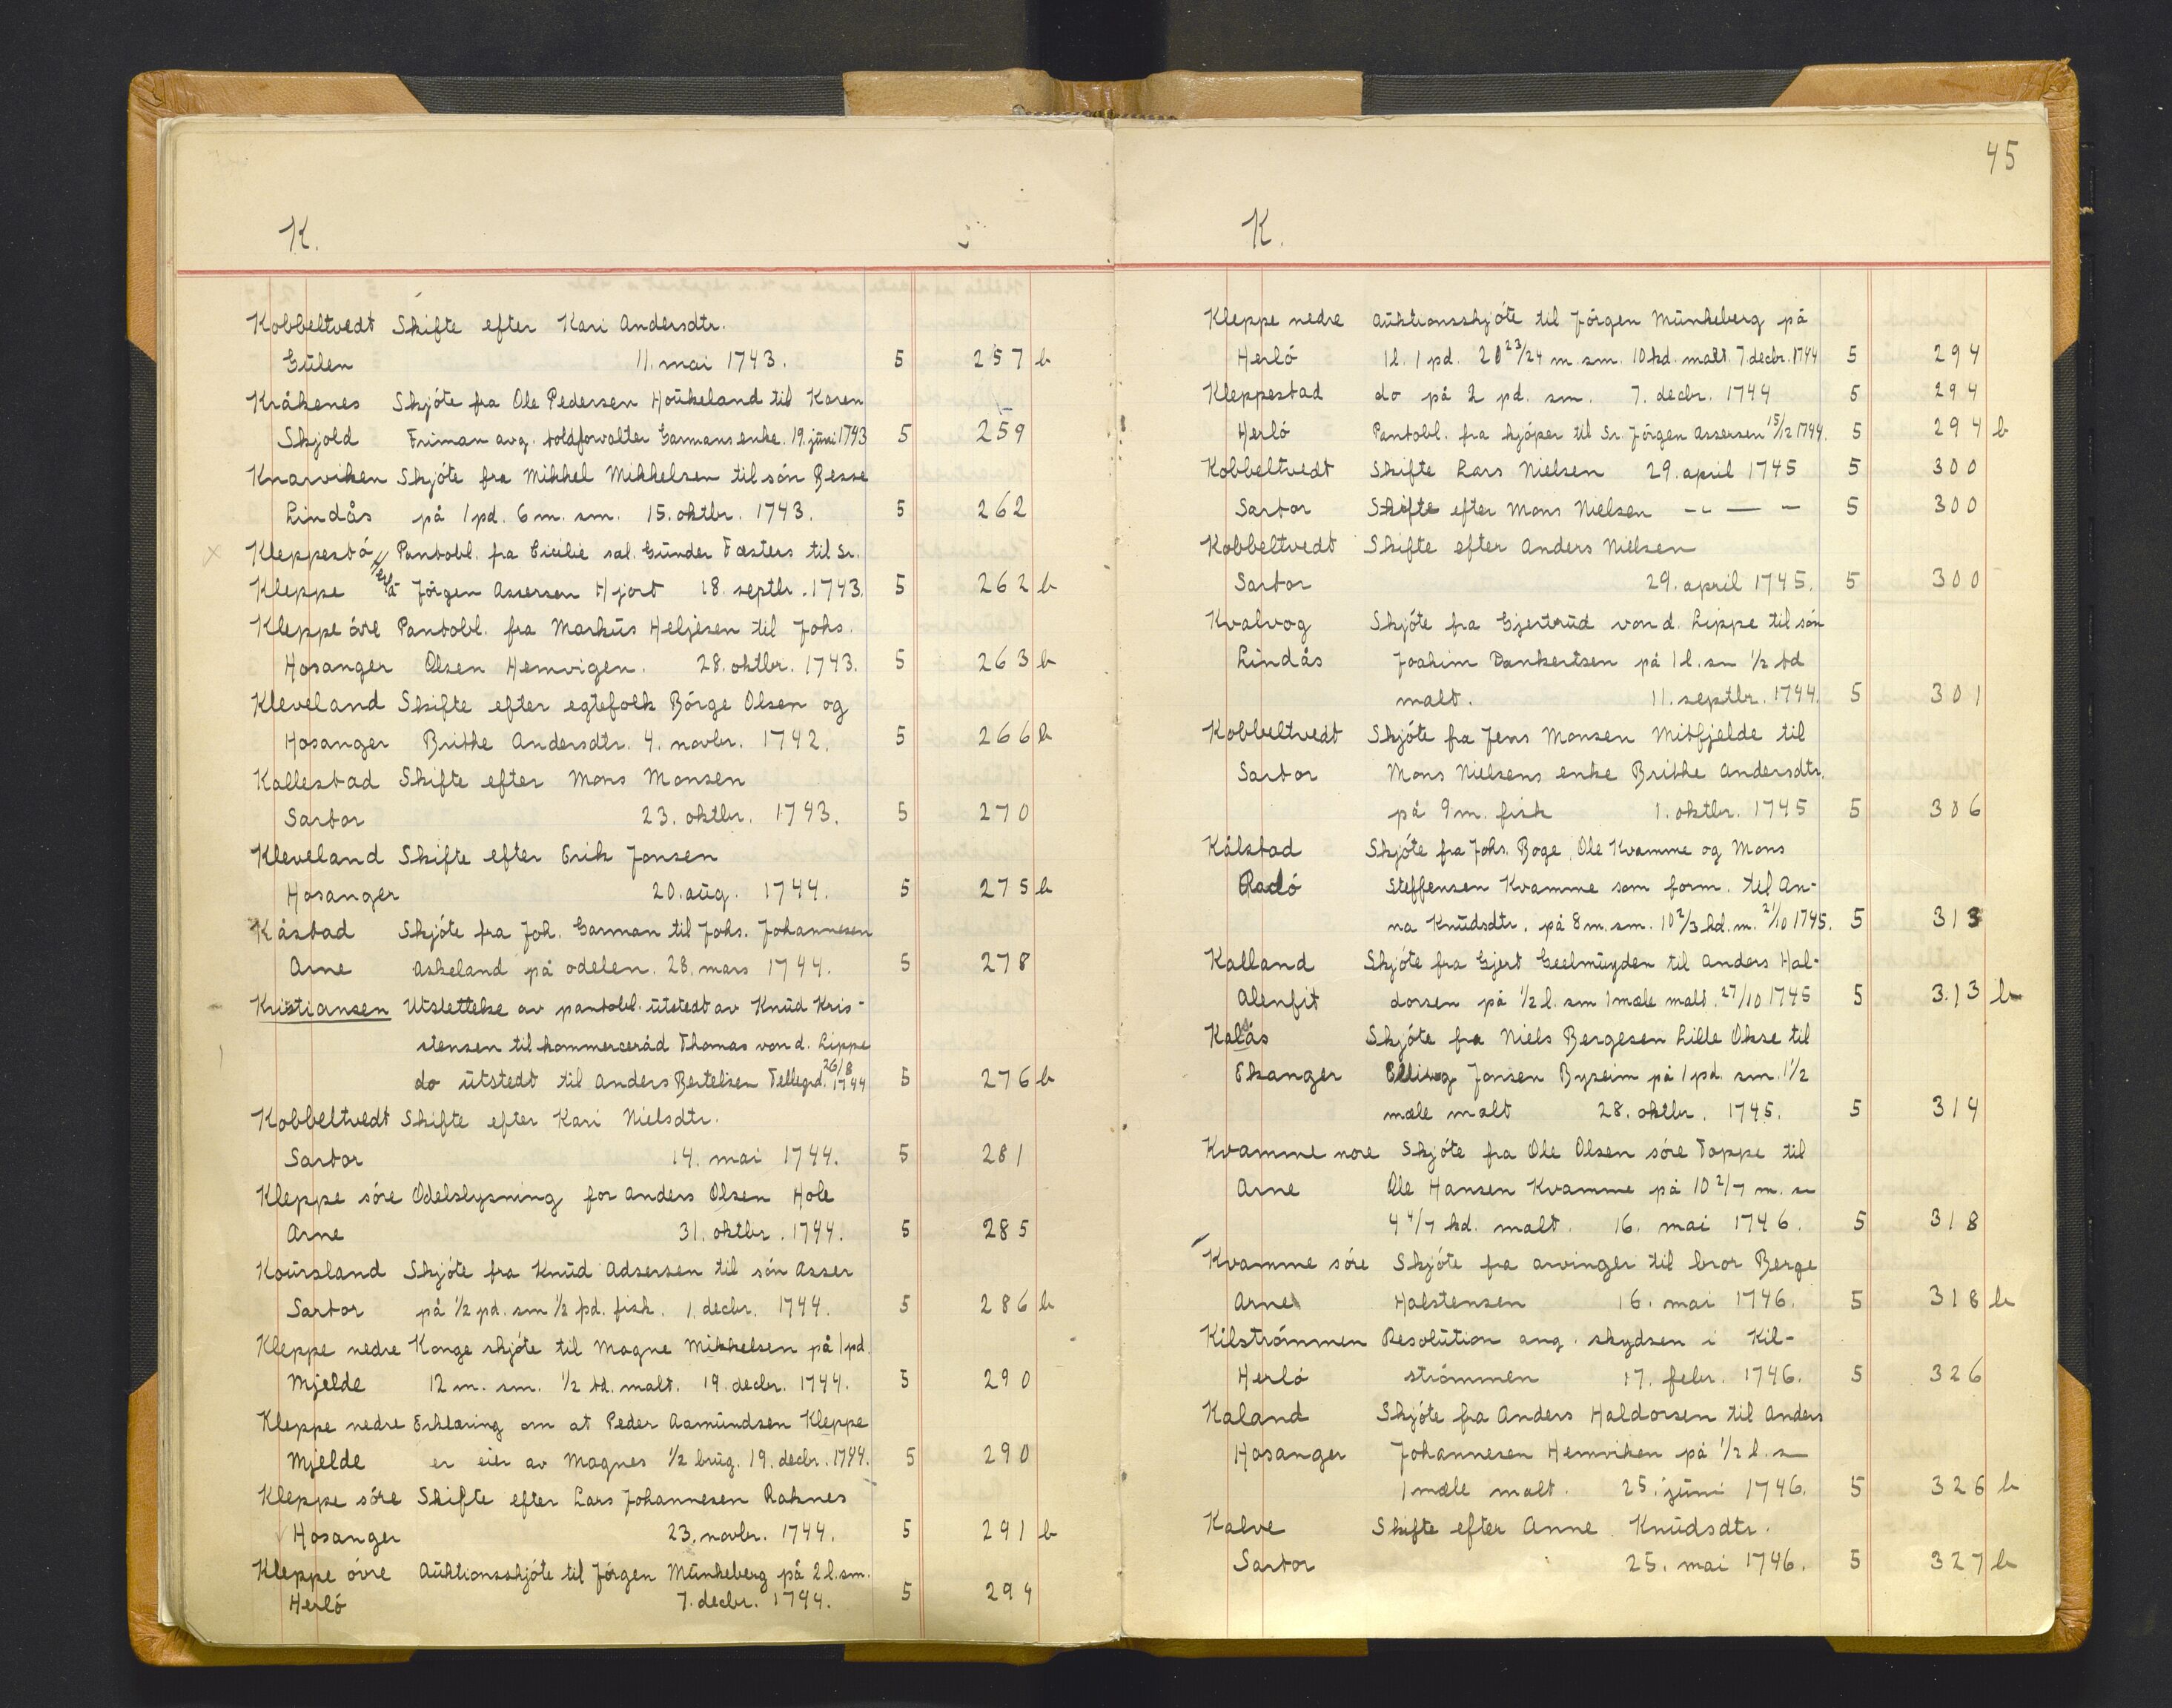 K.
Kobbeltvedt Skifte efter Kari Andersdtr.
Gülen 11. mai 1743. 5 257 b
Kråkenes Skjóte fra Ole Pedersen Hoükeland til Karen
Skjold Friman avg. toldforvalter Garmans enke. 19. jüni 1743 5 259
Knarviken Skjóte fra Mikkel Mikkelsen til són Besse
Lindås på 1 pd. 6 m. sm. 15. oktbr. 1743. 5 262
x Kleppestó Pantobl. fra Cicilie sal. Günder Fæsters til Sr.
Kleppe Herló Jörgen Assersen Hjort 18. septbr. 1743. 5 262 b
Kleppe óvre Pantobl. fra Marküs Heljesen til Johs.
Hosanger Olsen Hemvigen. 28. oktbr. 1743. 5 263 b
Kleveland Skifte efter egtefolk Börge Olsen og
Hosanger Brithe Andersdtr. 4. novbr. 1742. 5 266 b
Kallestad Skifte efter Mons Monsen
Sartor 23. oktbr. 1743. 5 270
Kleveland Skifte efter Erik Jonsen
Hosanger 20. aüg. 1744. 5 275 b
Kåstad Skjóte fra Joh. Garman til Johs. Johannesen
Arne Askeland på odelen. 28. mars 1744. 5 278
Kristiansen Utslettelse av pantobl. ütstedt av Knüd Kris-
stensen til kommerceråd Thomas von d. Lippe
do ütstedt til Anders Bertelsen Tellegrd. 26/8 1744 5 276 b
Kobbeltvedt Skifte efter Kari Nielsdtr.
Sartor 14. mai 1744. 5 281
Kleppe sóre Odelslysning for Anders Olsen Hole
Arne 31. oktbr. 1744. 5 285
Koürsland Skjóte fra Knüd Adsersen til són Asser
Sartor på 1/2 pd. sm 1/2 pd. fisk. 1. decbr. 1744. 5 286 b
Kleppe nedre Konge skjóte til Magne Mikkelsen på 1 pd.
Mjelde 12 m. sm. 1/2 td. malt. 19. decbr. 1744. 5 290
Kleppe nedre Erklæring om at Peder Aamündsen Kleppe
Mjelde er eier av Magnes 1/2 brüg. 19. decbr. 1744. 5 290
Kleppe sóre Skifte efter Lars Johannesen Raknes
Hosanger 23. novbr. 1744. 5 291 b
Kleppe óvre Aüktionsskjóte til Jörgen Münkeberg på 2 l. sm.
Herló 7. decbr. 1744. 5 294
45
K.
Kleppe nedre Aüktionsskjóte til Jörgen Münkeberg på
Herló 1 l. 1 pd. 20 23/24 m. sm. 10 kd. malt. 7. decbr. 1744 5 294
Kleppestad do på 2 pd. sm. 7. decbr. 1744 5 294
Herló Pantobl. fra kjóper til Sr. Jörgen Assersen 15/12 1744. 5 294 b
Kobbeltvedt Skifte Lars Nielsen 29. april 1745 5 300
Sartor Skifte efter Mons Nielsen -"- — - 5 300
Kobbeltvedt Skifte efter Anders Nielsen
Sartor 29. april 1745. 5 300
Kvalvog Skjóte fra Gjertrüd von d. Lippe til són
Lindås Joahim Dankertsen på 1 l. sm 1/2 td
malt. 11. septbr. 1744. 5 301
Kobbeltvedt Skjóte fra Jens Monsen Mitfjelde til
Sartor Mons Nielsens enke Brithe Andersdtr.
på 9 m. fisk 1. oktbr. 1745 5 306
Kålstad Skjóte fra Johs. Boge, Ole Kvamme og Mons
Radó Steffensen Kvamme som form. til An-
na Knüdsdtr. på 8 m. sm. 10 2/3 kd. m. 21/10 1745. 5 313
Kalland Skjóte fra Gjert Geelmüyden til Anders Hal-
Alenfit dorsen på 1/2 l. sm 1 mæle malt. 27/10 1745 5 313 b
Kalås Skjóte fra Niels Bergesen Lille Okse til
Ekanger Elling Jonsen Byseim på 1 pd. sm. 1 1/2
mæle malt 28. oktbr. 1745. 5 314
Kvamme nore Skjóte fra Ole Olsen sóre Toppe til
Arne Ole Hansen Kvamme på 10 2/7 m. sm
4 4/7 kd. malt. 16. mai 1746. 5 318
Kvamme sóre Skjóte fra arvinger til bror Berge
Arne Halstensen 16. mai 1746. 5 318 b
Kilstrómmen Resolütion ang. skydsen i Kil-
Herló strómmen 17. febr. 1746. 5 326
Kaland Skjóte fra Anders Haldorsen til Anders
Hosanger Johannesen Hemviken på 1/2 l. sm
1 mæle malt. 25. jüni 1746. 5 326 b
Kalve Skifte efter Anne Knüdsdtr.
Sartor 25. mai 1746. 5 327 b